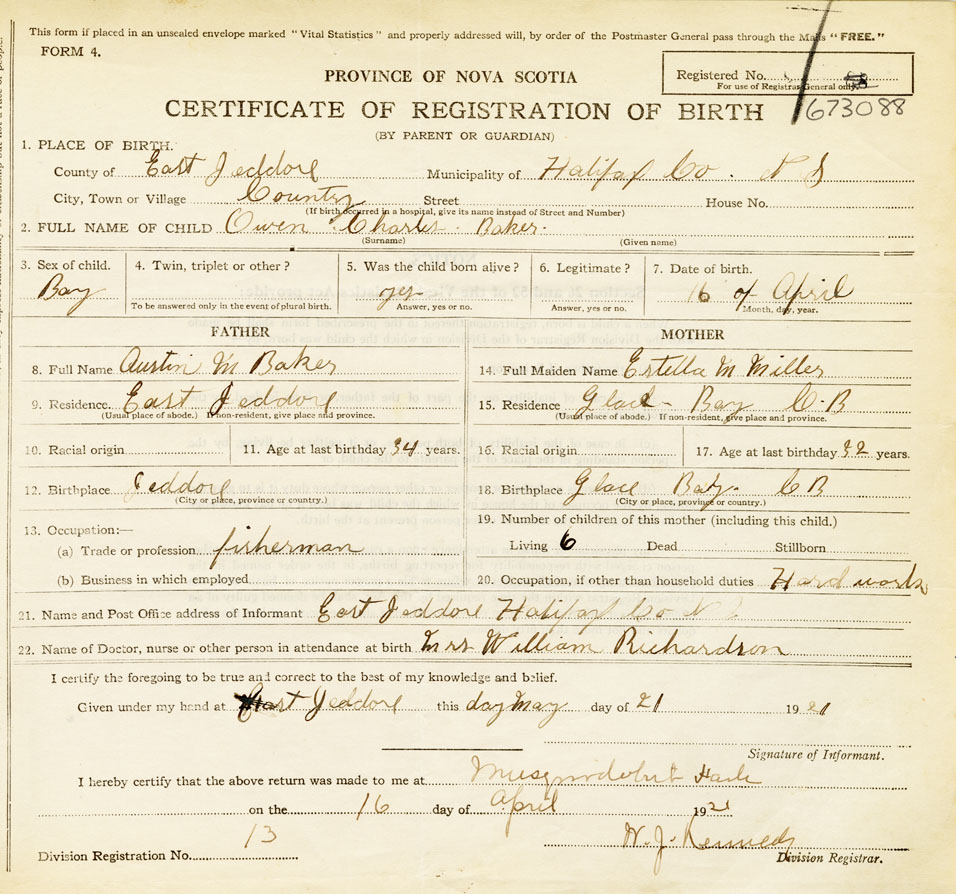 This form if placed in an unsealed envelope marked "Vital Statistics" and properly addressed will, by order of the Postmaster General pass through the Mails "FREE."
FORM 4.
PROVINCE OF NOVA SCOTIA
Registered No.
For use of Registrar General only.
CERTIFICATE OF REGISTRATION OF BIRTH
673088
(BY PARENT OR GUARDIAN)
1. PLACE OF BIRTH.
County of East Jeddore Municipality of Halifax Co. N S
City, Town or Village Country Street House No.
(If birth occurred in a hospital, give its name instead of Street and Number)
2. FULL NAME OF CHILD Owen Charles Baker
(Surname) (Given name)
3. Sex of child. 4. Twin, triplet or other? 5. Was the child born alive? 6. Legitimate? 7. Date of birth.
Boy yes 16 of April
To be answered only in the event of plural birth. Answer, yes or no. Answer, yes or no. Month, day, year.
FATHER MOTHER
8. Full Name Austin M Baker 14. Full Maiden Name Estella M Miller
9. Residence. East Jeddore 15. Residence Glace Bay C.B
(Usual place of abode.) If non-resident, give place and province. (Usual place of abode.) If non-resident, give place and province.
10. Racial origin 11. Age at last birthday 34 years. 16. Racial origin 17. Age at last birthday 32 years.
12. Birthplace Jeddore 18. Birthplace Glace Bay C B
(City or place, province or country.) (City or place, province or country.)
13. Occupation:— 19. Number of children of this mother (including this child.)
(a) Trade or profession fisherman Living 6 Dead Stillborn
(b) Business in which employed 20. Occupation, if other than household duties Hard works
21. Name and Post Office address of Informant East Jeddore Halifax Co N S
22. Name of Doctor, nurse or other person in attendance at birth Mrs William Richardson
I certify the foregoing to be true and correct to the best of my knowledge and belief.
Given under my hand at East Jeddore this day May day of 21 1921
Signature of Informant.
I hereby certify that the above return was made to me at Musquodoboit Harb
on the 16 day of April 1921
13 W. J. Kennedy
Division Registration No. Division Registrar.